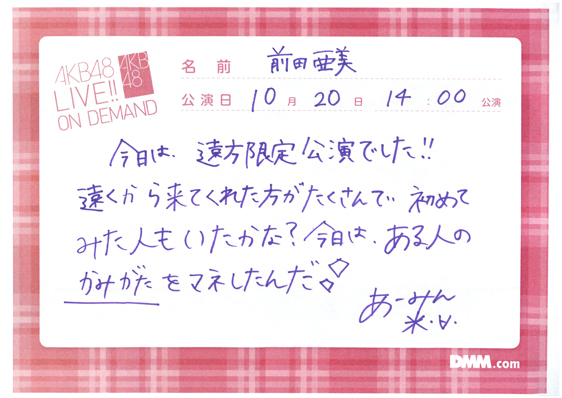 AKB48
LIVE!!
ON DEMAND
AKB
48
名前 前田亜美
公演日 10月20日 14:00公演
今日は、遠方限定公演でした!!
遠くから来てくれた方がたくさんで、初めて
みた人もいたかな?今日は、ある人の
かみがたをマネしたんだ
あーみん
DMM.com